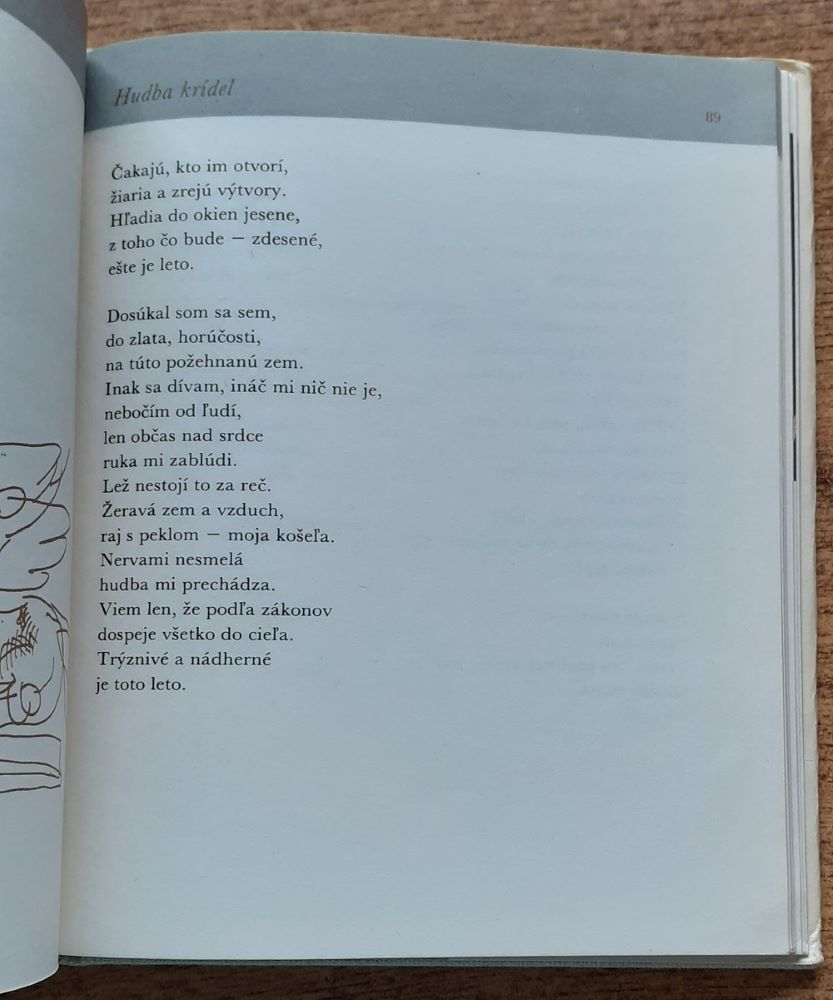 Hudba krídel
89
Čakajú, kto im otvorí,
žiaria a zrejú výtvory.
Hľadia do okien jesene,
z toho čo bude — zdesené,
ešte je leto.
Dosúkal som sa sem,
do zlata, horúčosti,
na túto požehnanú zem.
Inak sa dívam, ináč mi nič nie je,
nebočím od ľudí,
len občas nad srdce
ruka mi zablúdi.
Lež nestojí to za reč.
Žeravá zem a vzduch,
raj s peklom — moja košeľa.
Nervami nesmelá
hudba mi prechádza.
Viem len, že podľa zákonov
dospeje všetko do cieľa.
Trýznivé a nádherné
je toto leto.